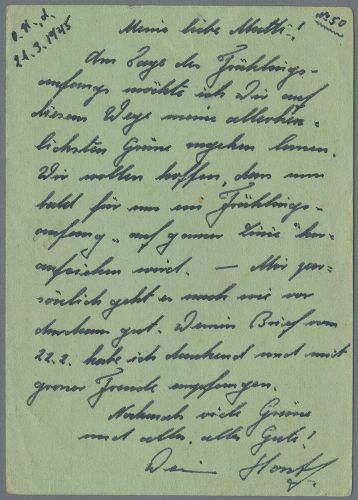 O.K., d.
21.3.1945
No 50
Meine liebe Mutti!
Am Tage des Frühlings-
anfangs möchte ich Dir auf
diesem Wege meine allerherz-
lichsten Grüsse zugehen lassen.
Wir wollen hoffen, dass nun
bald für uns ein Frühlings-
anfang "auf ganzer Linie" her-
aufziehen wird. — Mir per-
sönlich geht es nach wie vor
durchaus gut. Deinen Brief vom
22.2. habe ich dankend und mit
grosser Freude empfangen.
Nochmals viele Grüsse
und alles, alles Gute!
Dein Horst.